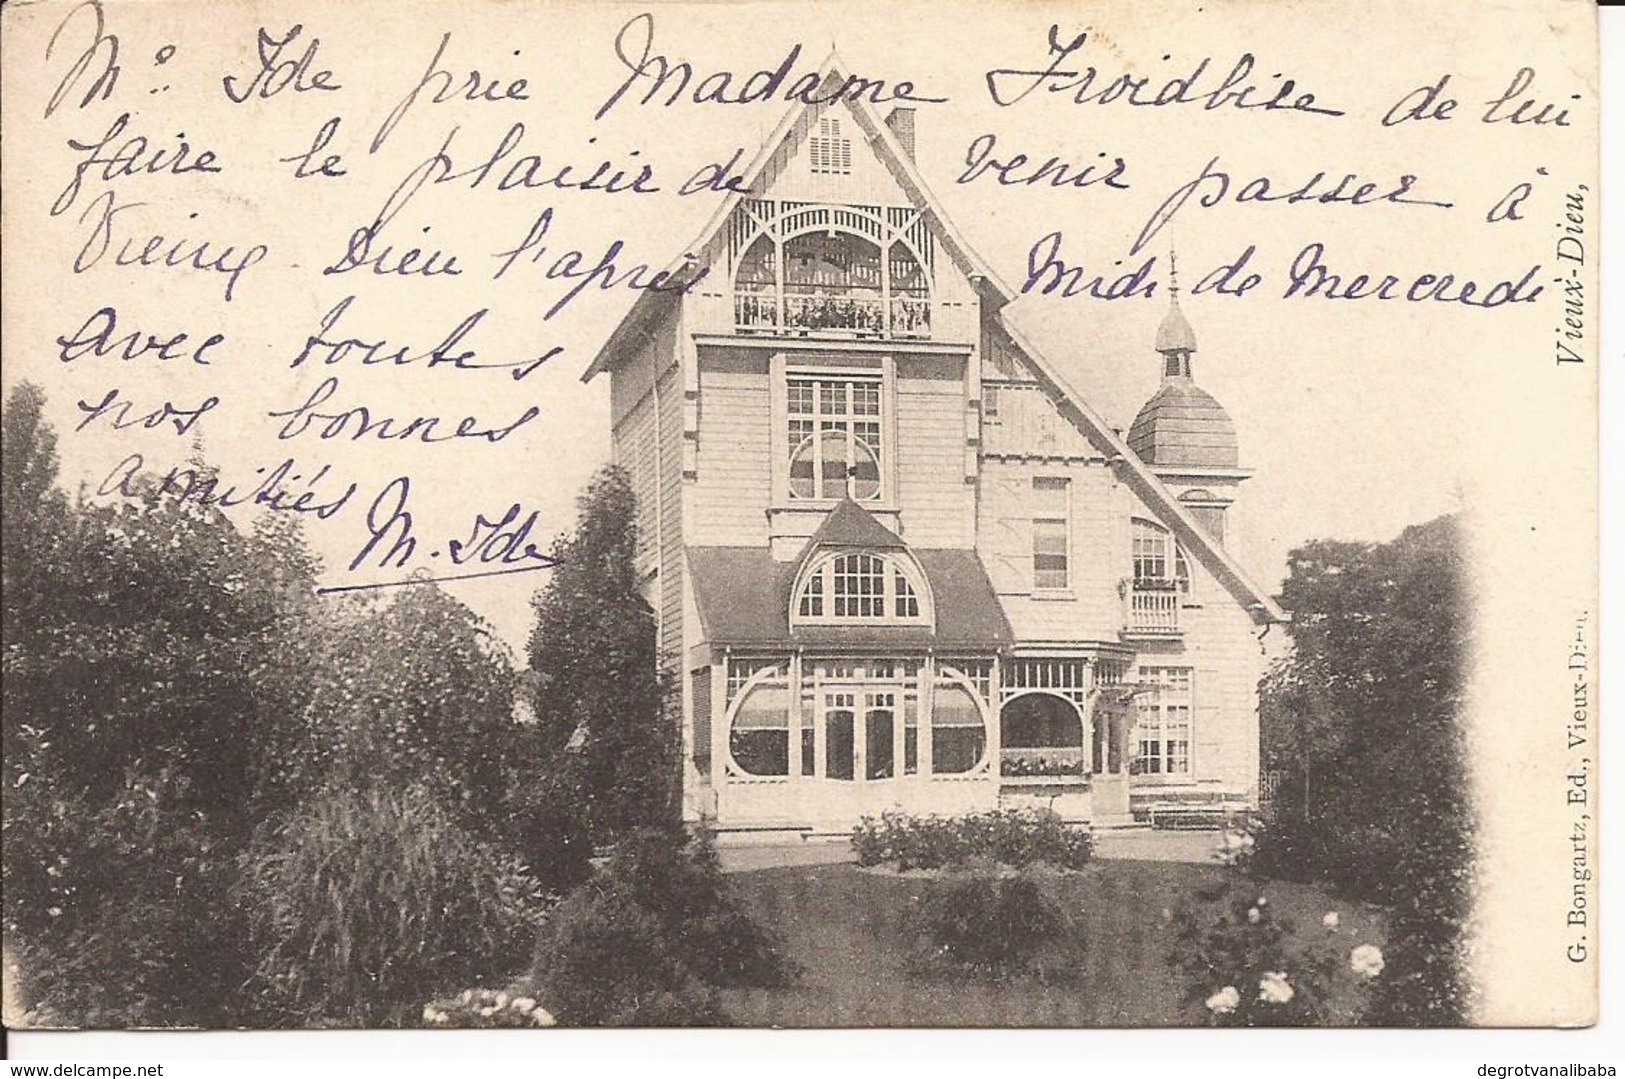 Mᵉ. Ide prie Madame Froidbise de lui
faire le plaisir de venir passer à
Vieux-Dieu l'après Midi de Mercredi
avec toutes
nos bonnes
amitiés
M. Ide
Vieux-Dieu,
G. Bongartz, Ed., Vieux-Dieu.
www.delcampe.net
degrotvanalibaba